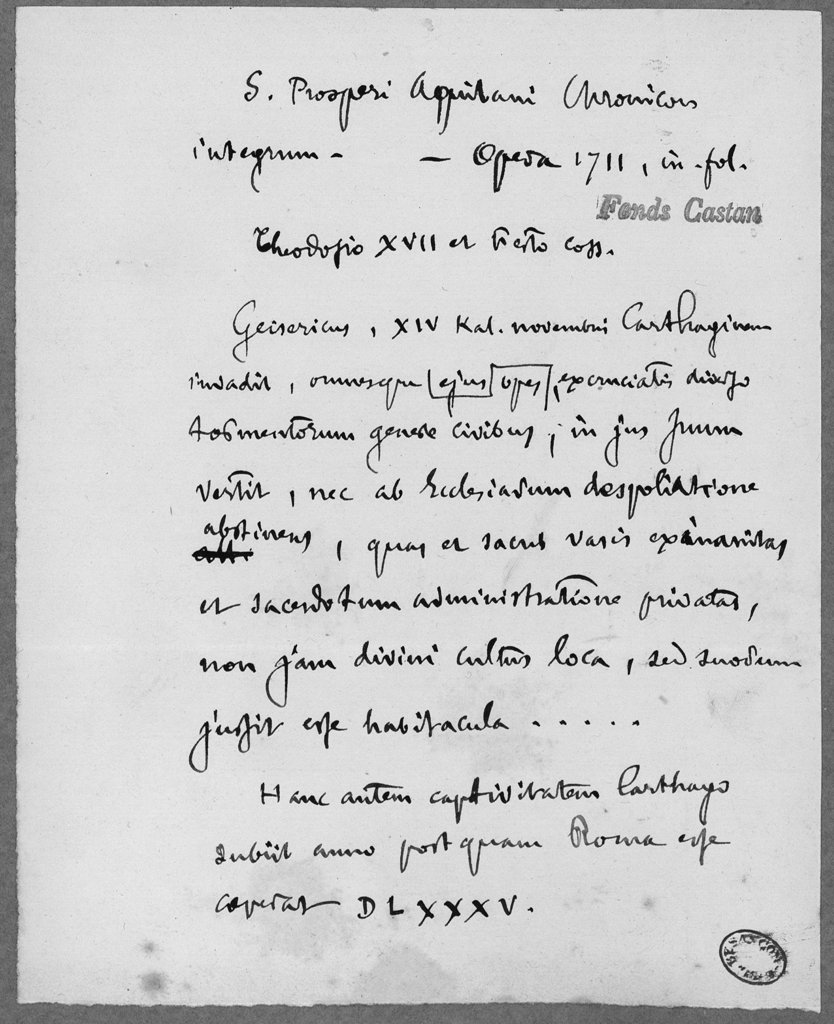 S. Prosperi Aquitani Chronicon
integrum - — Opera 1711, in-fol.
Fonds Castan
Theodosio XVII et Festo coss.
Geisericus, XIV Kal. novembris Carthaginem
invadit, omnesque ejus opes, excruciatis diverso
tormentorum genere civibus, in jus suum
vertit, nec ab Ecclesiarum despoliatione
abstinens, quas et sacris vasis exinanitas
et sacerdotum administratione privatas,
non jam divini cultus loca, sed suorum
jussit esse habitacula . . . . .
Hanc autem captivitatem Carthago
subiit anno postquam Romana esse
coeperat DLXXXV.
BESANÇON